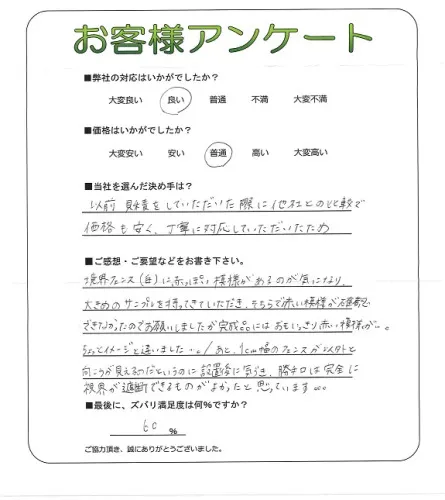 お客様アンケート
■弊社の対応はいかがでしたか?
大変良い 良い 普通 不満 大変不満
■価格はいかがでしたか?
大変安い 安い 普通 高い 大変高い
■当社を選んだ決め手は?
以前見積をしていただいた際に他社との比較で
価格も安く、丁寧に対応していただいたため
■ご感想・ご要望などをお書き下さい。
境界フェンス(白)に赤っぽい模様があるのが気になり、
大きめのサンプルを持ってきていただき、そちらで赤い模様が確認
できなかったのでお願いしましたが完成品にはおもいっきり赤い模様が…。
ちょっとイメージと違いました…。/あと、1cm幅のフェンスが以外と
向こうが見えるのだというのに設置後に気づき、勝手口は完全に
視界が遮断できるものがよかったと思っています。。。
■最後に、ズバリ満足度は何%ですか?
60 %
ご協力頂き、誠にありがとうございました。